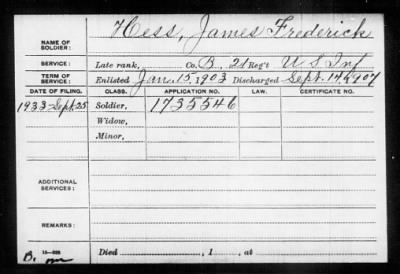 NAME OF SOLDIER: Hess, James Frederick
SERVICE: Late rank, Co. B, 21 Reg't U S Inf
TERM OF SERVICE: Enlisted Jan. 15, 1903 Discharged Sept. 14, 1907
DATE OF FILING. CLASS. APPLICATION NO. LAW. CERTIFICATE NO.
1933 Sept. 25 Soldier, 1735546
Widow,
Minor,
ADDITIONAL SERVICES:
REMARKS:
Died , 1 , at
B.